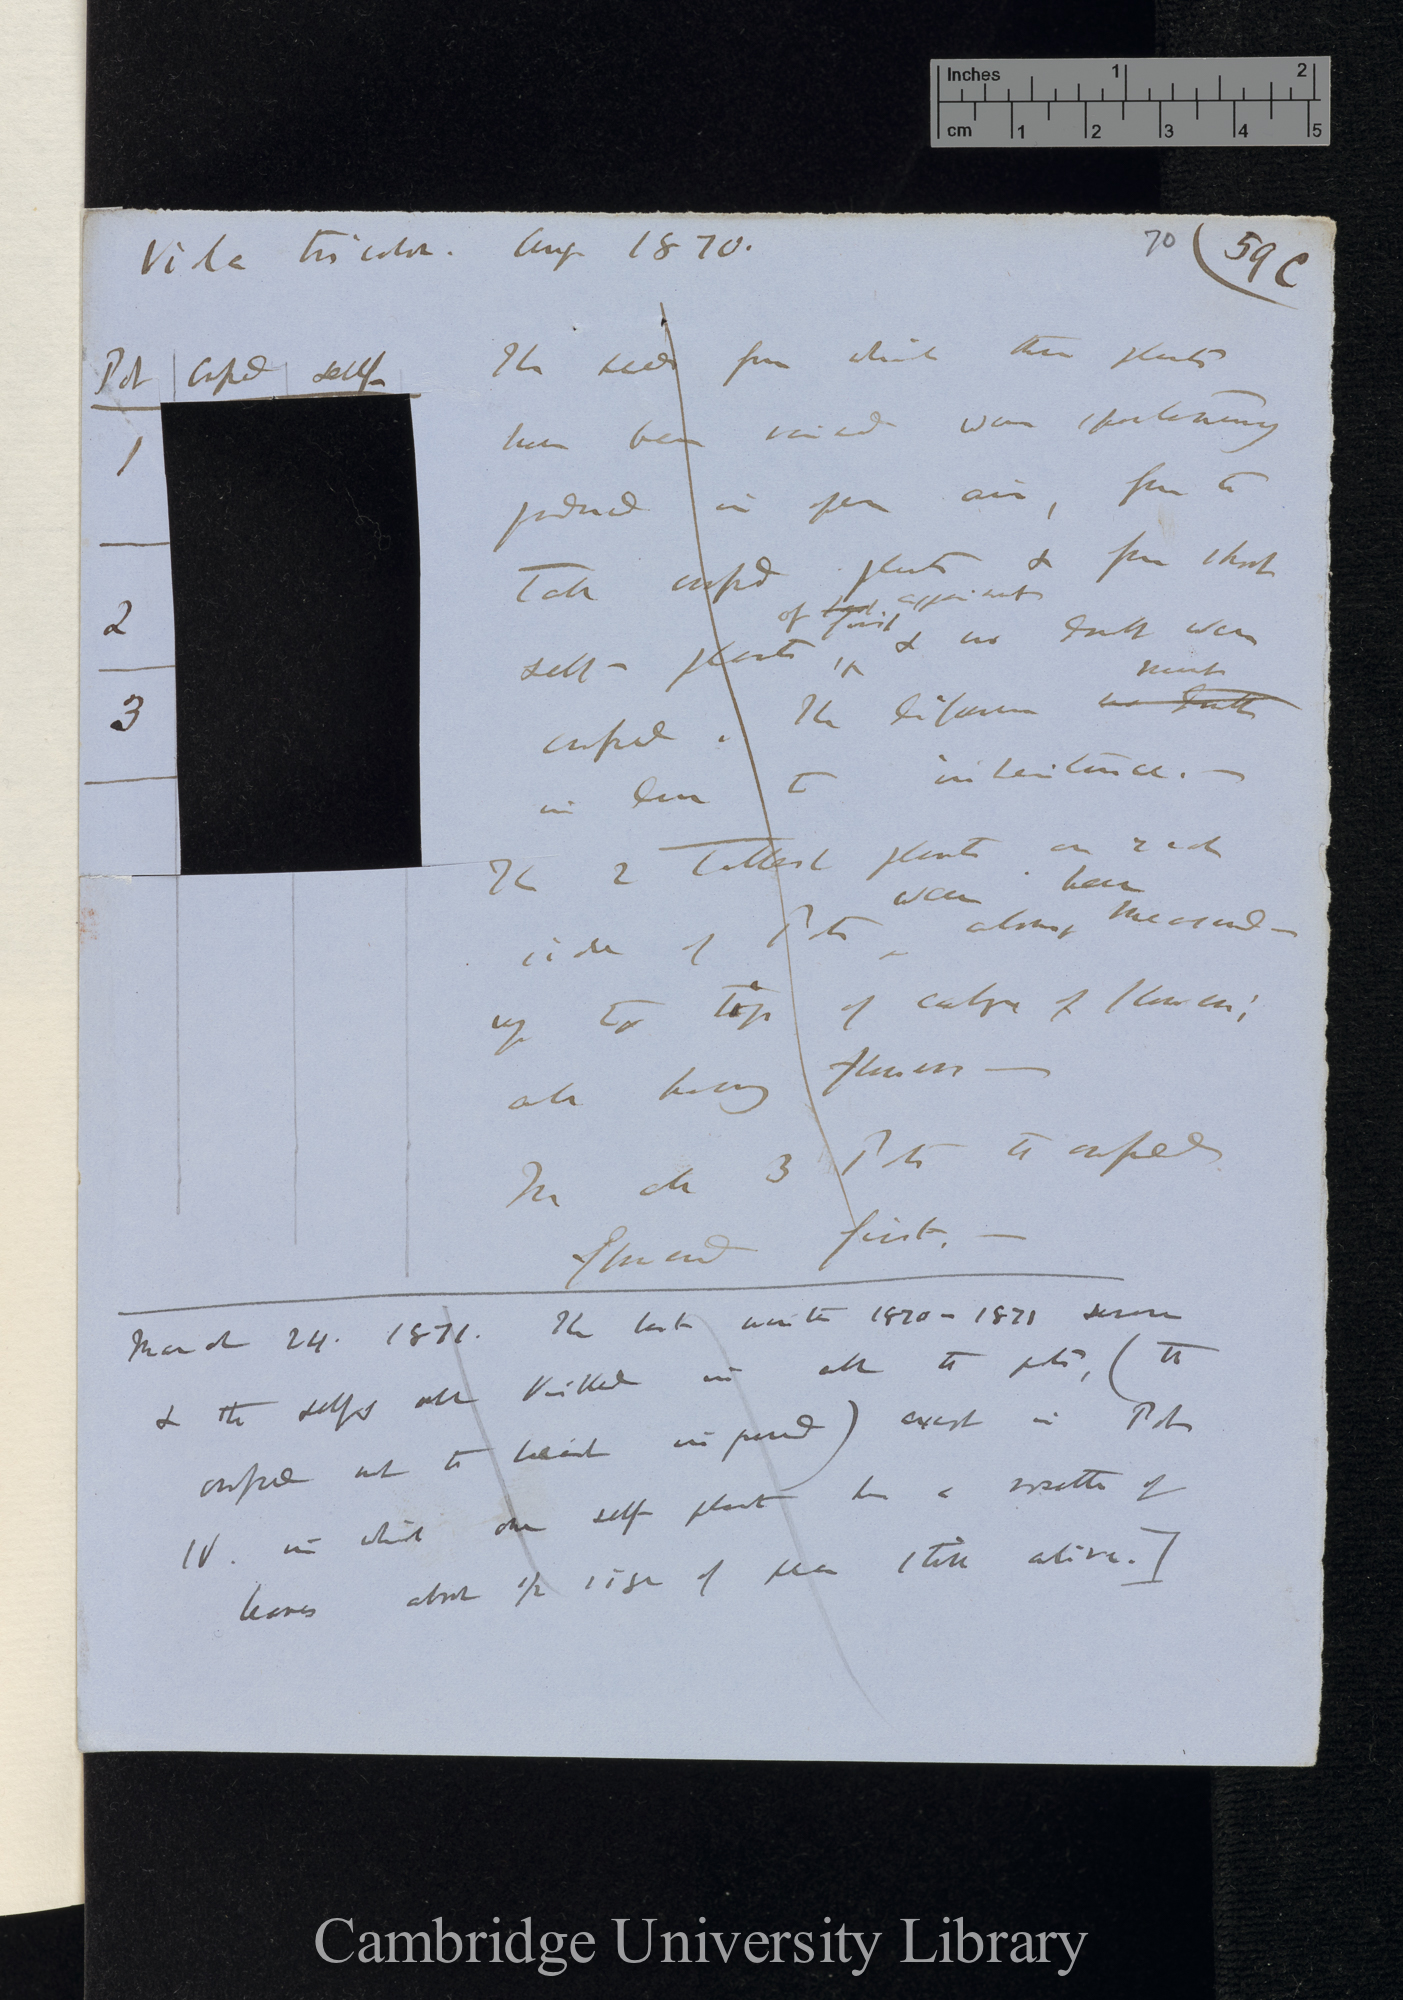 Inches 1 2
cm 1 2 3 4 5
Viola tricolor. Aug 1870.
70
59 C
Pot | Crossed | self-
1
2
3
The seeds from which these plants
have been raised were spontaneously
produced in open air, from the
Tall crossed plants & from short
self- plants of first experiments & no doubt were
crossed. The difference must
no doubt
in due to inheritance. —
The 2 tallest plants on each
side of Pots were always measured
up to tip of calyx of flower;
all having flowers —
In all 3 Pots the crossed
flowered first. —
March 24. 1871. The last winter 1870-1871 severe
& the selfs all killed in all the pots, (the
crossed not the least injured) except in Pot
IV. in which one self plant has a rosette of
leaves about 1/2 size of pea still alive.]
Cambridge University Library